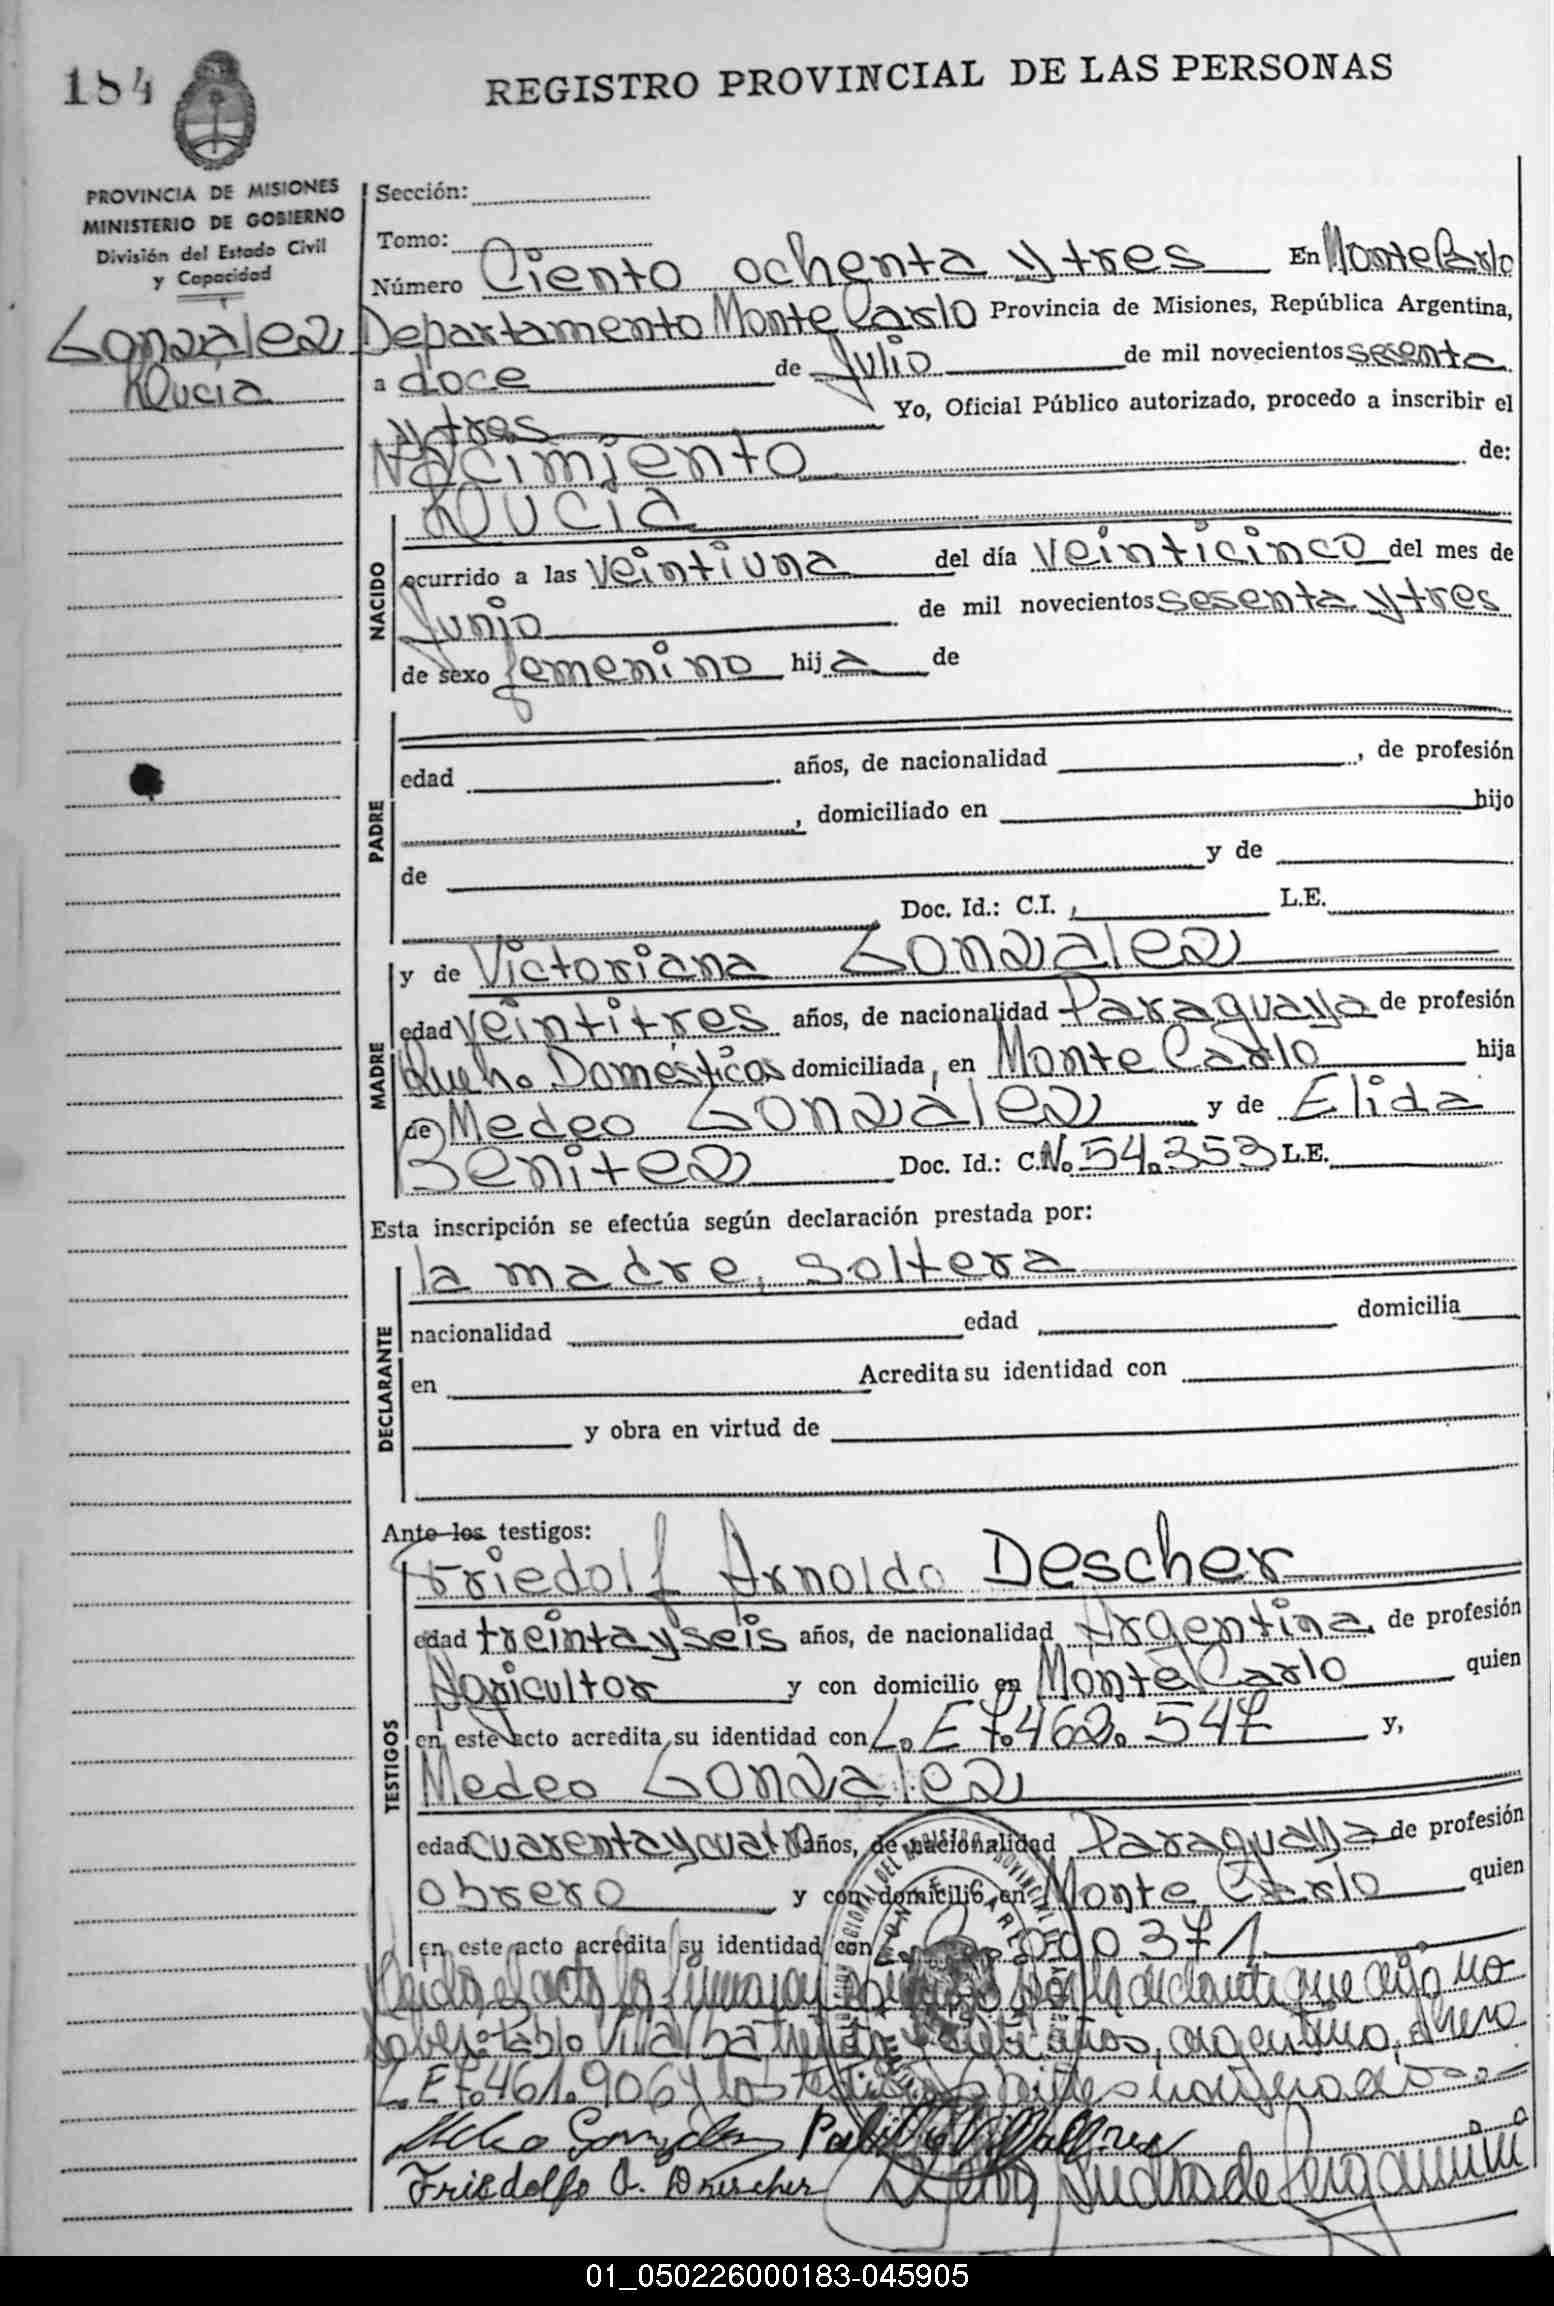 184
REGISTRO PROVINCIAL DE LAS PERSONAS
PROVINCIA DE MISIONES
MINISTERIO DE GOBIERNO
División del Estado Civil
y Capacidad
González
Lucia
Sección:
Tomo:
Número Ciento ochenta y tres En Monte Carlo
Departamento Monte Carlo Provincia de Misiones, República Argentina,
a doce de Julio de mil novecientos sesenta
y tres Yo, Oficial Público autorizado, procedo a inscribir el
Nacimiento de:
Lucia
NACIDO
ocurrido a las veintiuna del día veinticinco del mes de
Junio de mil novecientos sesenta y tres
de sexo femenino hija de
PADRE
edad años, de nacionalidad , de profesión
, domiciliado en hijo
de y de
Doc. Id.: C.I. L.E.
MADRE
y de Victoriana Gonzalez
edad veintitres años, de nacionalidad Paraguaya de profesión
Domésticos domiciliada, en Monte Carlo hija
de Medeo González y de Elida
Benitez Doc. Id.: C.No. 54.353 L.E.
Esta inscripción se efectúa según declaración prestada por:
DECLARANTE
la madre, soltera
nacionalidad edad domicilia
en Acredita su identidad con
y obra en virtud de
Ante los testigos:
TESTIGOS
Friedolf Arnoldo Descher
edad treinta y seis años, de nacionalidad Argentina de profesión
Agricultor y con domicilio en Monte Carlo quien
en este acto acredita su identidad con L.E 7.462.547 y,
Medeo Gonzalez
edad cuarenta y cuatro años, de nacionalidad Paraguaya de profesión
obrero y con domicilio en Monte Carlo quien
en este acto acredita su identidad con 371
Leida el acta la firma por la declarante que dijo no
saber: Pablo Villalba años, argentino, obrero
L.E 7.461.906 y los
Pablo Villalba
Friedolfo A. Drescher
01_050226000183-045905